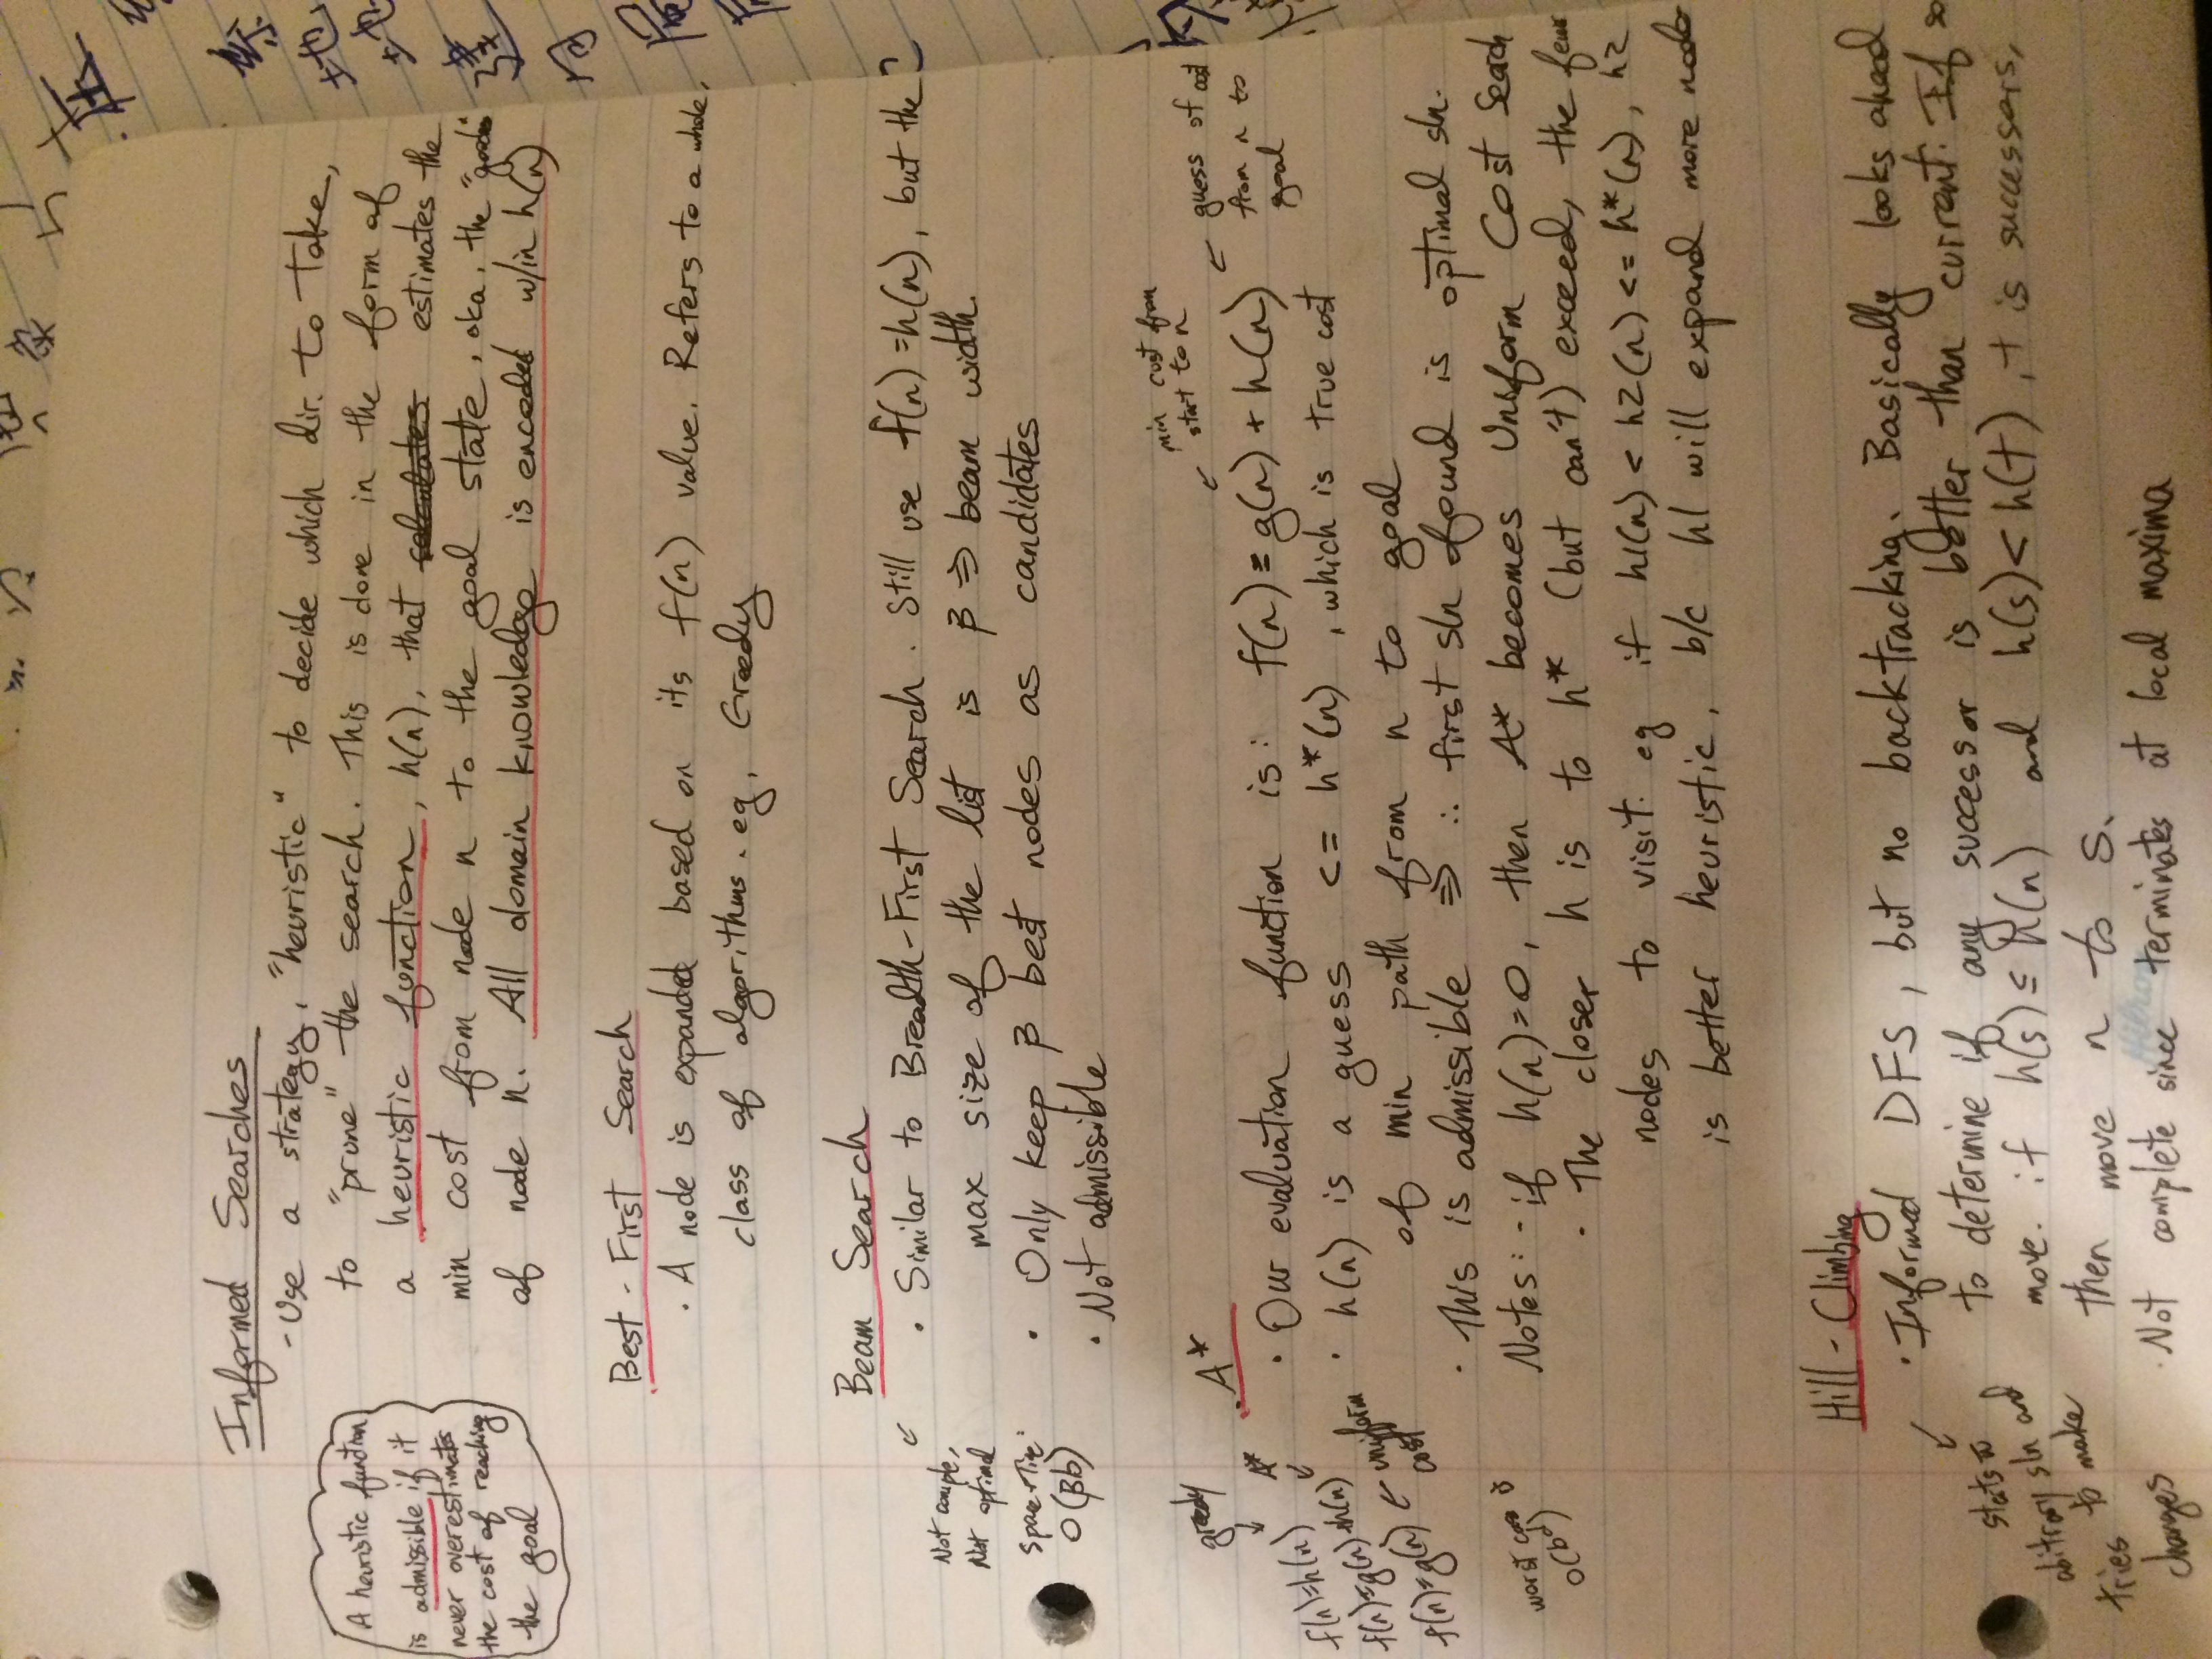 Informed Searches
-Use a strategy, "heuristic" to decide which dir. to take,
to "prune" the search. This is done in the form of
a heuristic function, h(n), that calculates estimates the
min cost from node n to the goal state, aka, the
of node n. All domain knowledge is encoded w/in h(n)
A heuristic function
is admissible if it
never overestimates
the cost of reaching
the goal
Best-First Search
· A node is expanded based on its f(n) value. Refers to a whole
class of algorithms. eg, Greedy
Beam Search
· Similar to Breadth-First Search. Still use f(n)=h(n), but the
max size of the list is β ⇒ beam width.
· Only keep β best nodes as candidates
· Not admissible
←
Not comple,
Not optimal
Space+Time:
O(βb)
A*
min cost from
start to n
guess of cost
from n to
goal
· Our evaluation function is: f(n) = g(n) + h(n)
· h(n) is a guess <= h*(n), which is true cost
of min path from n to goal
· This is admissible ⇒ ∴ first sln found is optimal sln.
Notes: -if h(n)=0, then A* becomes Uniform Cost Search
· The closer h is to h* (but can't) exceed, the
nodes to visit. eg if h1(n) < h2(n) <= h*(n), h2
is better heuristic, b/c h1 will expand more
greedy
↓
A*
f(n)=h(n)
f(n)=g(n)+h(n)
f(n)=g(n) ← uniform
cost
worst case is
O(b^d)
Hill-Climbing
· Informed DFS, but no backtracking. Basically looks ahead
to determine if any successor is better than current. If so
move. if h(s) ≤ h(n) and h(s) < h(t), t is successors,
then move n to s.
· Not complete since terminates at local maxima
starts w
abitrary sln and
tries to make
changes
Hilroy